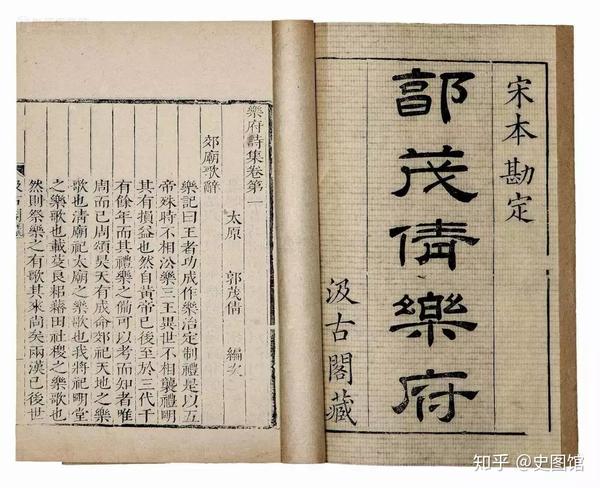 宋本勘定
郭茂倩樂府
汲古閣藏
樂府詩集卷第一
太原 郭茂倩 編次
郊廟歌辭
樂記曰王者功成作樂治定制禮是以五
帝殊時不相㳂樂三王異世不相襲禮明
其有損益也然自黃帝已後至於三代千
有餘年而其禮樂之備可以考而知者唯
周而已周頌昊天有成命郊祀天地之樂
歌也清廟祀太廟之樂歌也我將祀明堂
之樂歌也載芟良耜藉田社稷之樂歌也
然則祭樂之有歌其來尚矣兩漢已後世
知乎 @史图馆